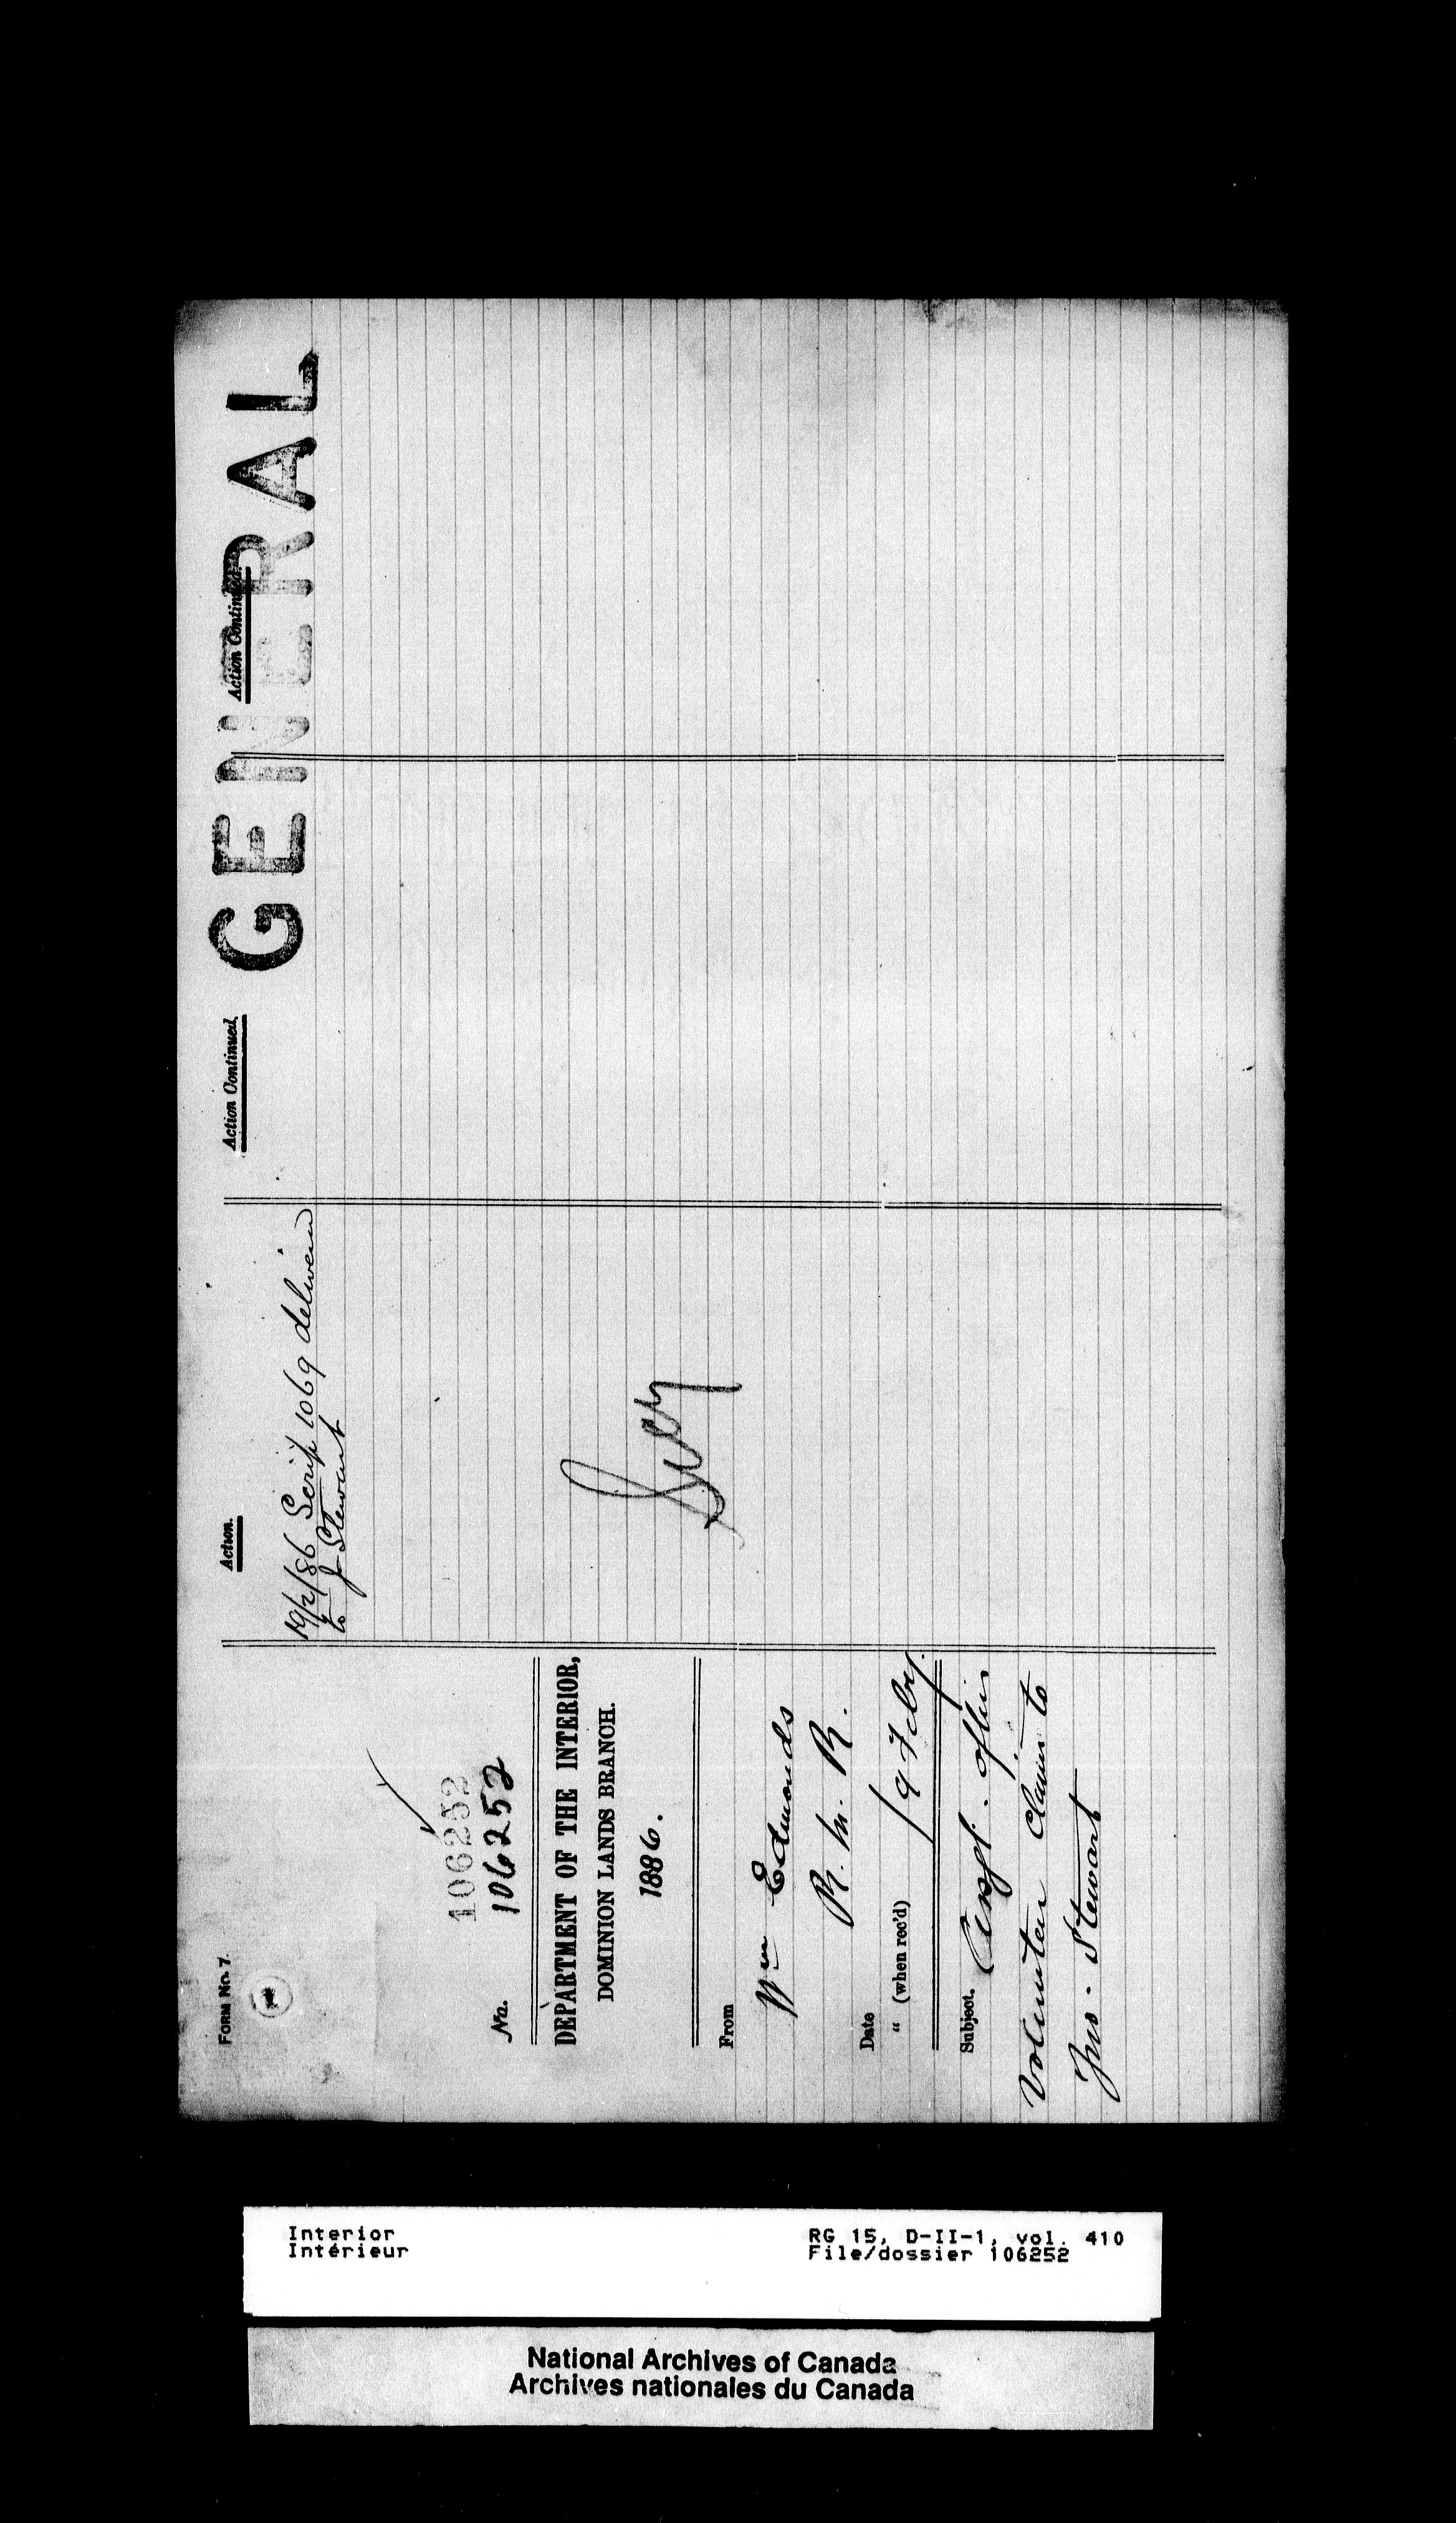 FORM No. 7.
106252
No. 106252
DEPARTMENT OF THE INTERIOR,
DOMINION LANDS BRANCH.
1886.
From
Wm Edmonds
R. M. R.
Date
" (when rec'd) 19 Feby.
Subject. Assgt. of his
Volunteer Claim to
Jno. Stewart
Action.
19/2/86 Scrip 1069 deliver
to J Stewart
Action Continued.
GENERAL
Action Continued.
Interior
Intérieur
RG 15, D-II-1, vol. 410
File/dossier 106252
National Archives of Canada
Archives nationales du Canada